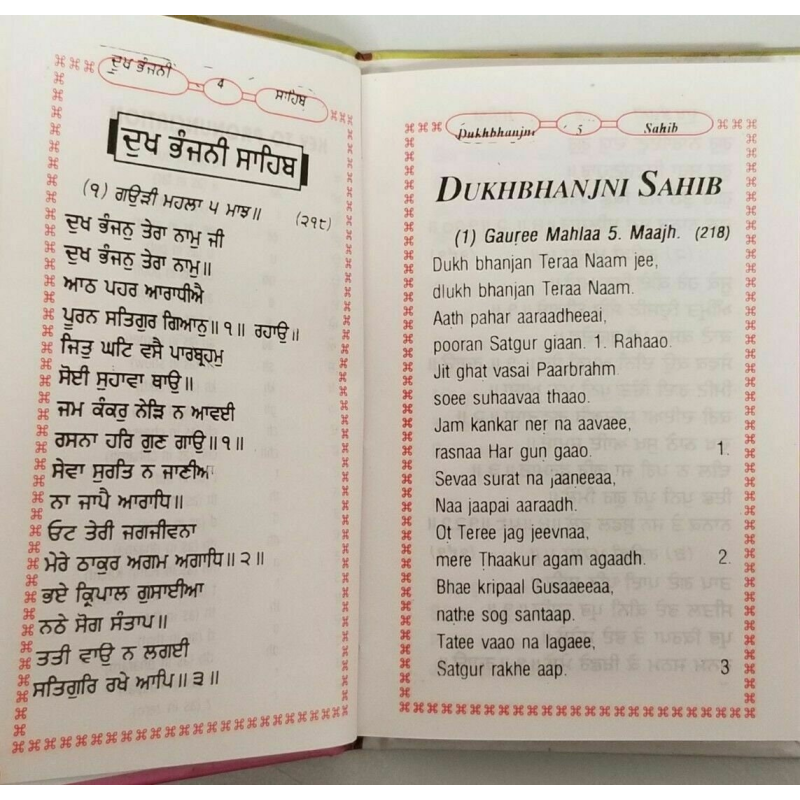 ਦੁਖ ਭੰਜਨੀ 4 ਸਾਹਿਬ
ਦੁਖ ਭੰਜਨੀ ਸਾਹਿਬ
(੧) ਗਉੜੀ ਮਹਲਾ ੫ ਮਾਝ॥ (੨੧੮)
ਦੁਖ ਭੰਜਨੁ ਤੇਰਾ ਨਾਮੁ ਜੀ
ਦੁਖ ਭੰਜਨੁ ਤੇਰਾ ਨਾਮੁ॥
ਆਠ ਪਹਰ ਆਰਾਧੀਐ
ਪੂਰਨ ਸਤਿਗੁਰ ਗਿਆਨੁ॥੧॥ ਰਹਾਉ॥
ਜਿਤੁ ਘਟਿ ਵਸੈ ਪਾਰਬ੍ਰਹਮੁ
ਸੋਈ ਸੁਹਾਵਾ ਥਾਉ॥
ਜਮ ਕੰਕਰੁ ਨੇੜਿ ਨ ਆਵਈ
ਰਸਨਾ ਹਰਿ ਗੁਣ ਗਾਉ॥੧॥
ਸੇਵਾ ਸੁਰਤਿ ਨ ਜਾਣੀਆ
ਨਾ ਜਾਪੈ ਆਰਾਧਿ॥
ਓਟ ਤੇਰੀ ਜਗਜੀਵਨਾ
ਮੇਰੇ ਠਾਕੁਰ ਅਗਮ ਅਗਾਧਿ॥੨॥
ਭਏ ਕ੍ਰਿਪਾਲ ਗੁਸਾਈਆ
ਨਠੇ ਸੋਗ ਸੰਤਾਪ॥
ਤਤੀ ਵਾਉ ਨ ਲਗਈ
ਸਤਿਗੁਰਿ ਰਖੇ ਆਪਿ॥੩॥
Dukhbhanjni 5 Sahib
DUKHBHANJNI SAHIB
(1) Gauṛee Mahlaa 5. Maajh. (218)
Dukh bhanjan Teraa Naam jee,
dlukh bhanjan Teraa Naam.
Aaṭh pahar aaraadheeai,
pooran Satgur giaan. 1. Rahaao.
Jit ghaṭ vasai Paarbrahm.
soee suhaavaa thaao.
Jam kankar neṛ na aavaee,
rasnaa Har guṇ gaao. 1.
Sevaa surat na jaaṇeeaa,
Naa jaapai aaraadh.
Oṭ Teree jag jeevnaa,
mere Ṭhaakur agam agaadh. 2.
Bhae kripaal Gusaaeeaa,
naṭhe sog santaap.
Tatee vaao na lagaee,
Satgur rakhe aap. 3